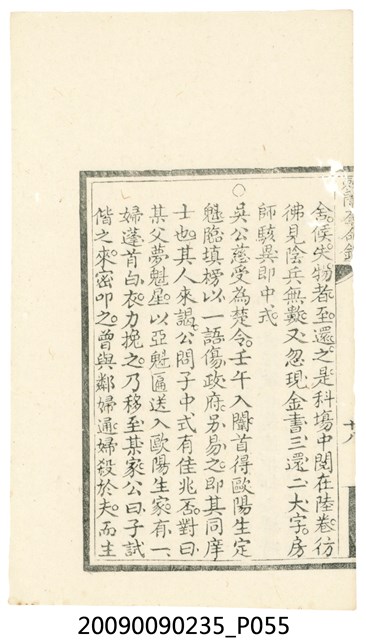 舍候失物者至還之是科場中閱在陸卷彷
彿見陰兵無數又忽現金書三還二大字房
師駭異即中式
○
吳公慈受為楚令壬午入闈首得歐陽生定
魁臨填榜以一語傷政府另易之即其同庠
士也其人來謁公問子中式有佳兆否對曰
某父夢魁星以亞魁匾送入歐陽生家有一
婦蓬首白衣力挽之乃移至某家公曰子試
偕之來密叩之曾與鄰婦通婦殺於夫而生
廿八
20090090235_P055